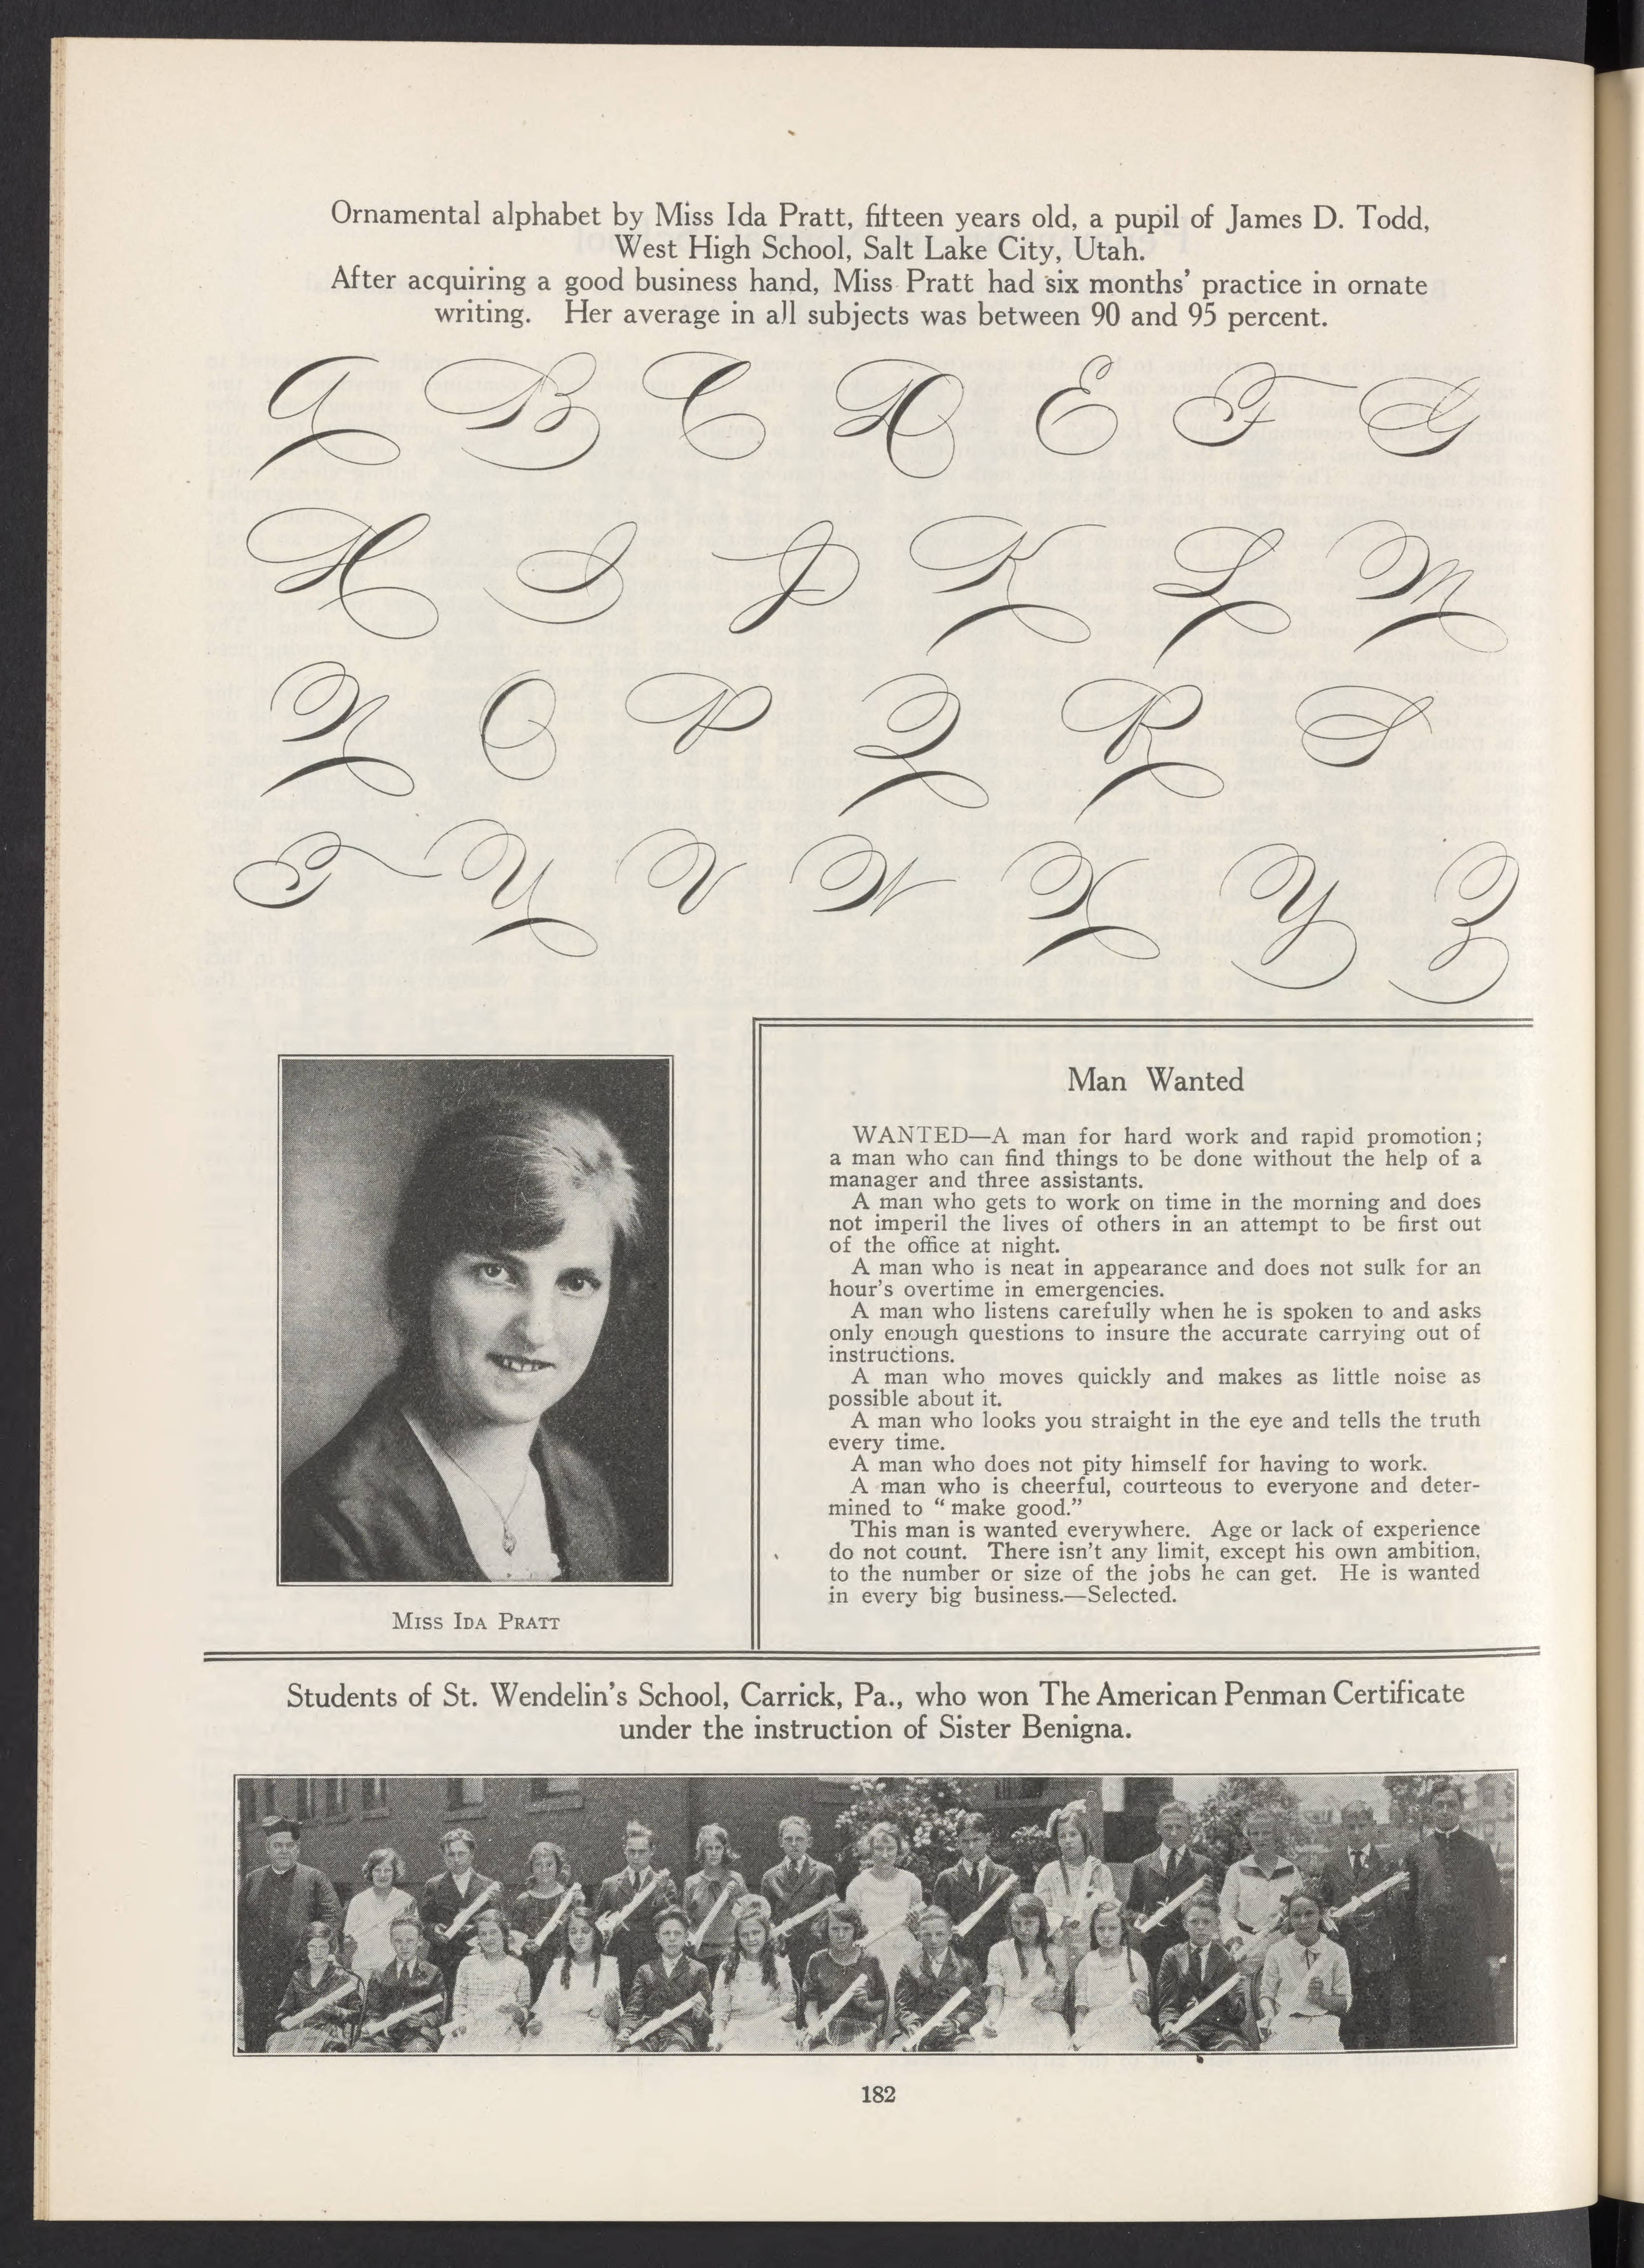 Ornamental alphabet by Miss Ida Pratt, fifteen years old, a pupil of James D. Todd,
West High School, Salt Lake City, Utah.
After acquiring a good business hand, Miss Pratt had six months’ practice in ornate
writing. Her average in all subjects was between 90 and 95 percent.
A B C D E F G
H I J K L M
N O P Q R S
T U V W X Y Z
Man Wanted
WANTED—A man for hard work and rapid promotion;
a man who can find things to be done without the help of a
manager and three assistants.
A man who gets to work on time in the morning and does
not imperil the lives of others in an attempt to be first out
of the office at night.
A man who is neat in appearance and does not sulk for an
hour's overtime in emergencies.
A man who listens carefully when he is spoken to and asks
only enough questions to insure the accurate carrying out of
instructions.
A man who moves quickly and makes as little noise as
possible about it.
A man who looks you straight in the eye and tells the truth
every time.
A man who does not pity himself for having to work.
A man who is cheerful, courteous to everyone and deter-
mined to “make good.”
This man is wanted everywhere. Age or lack of experience
do not count. There isn't any limit, except his own ambition,
to the number or size of the jobs he can get. He is wanted
in every big business.—Selected.
MISS IDA PRATT
Students of St. Wendelin's School, Carrick, Pa., who won The American Penman Certificate
under the instruction of Sister Benigna.
182